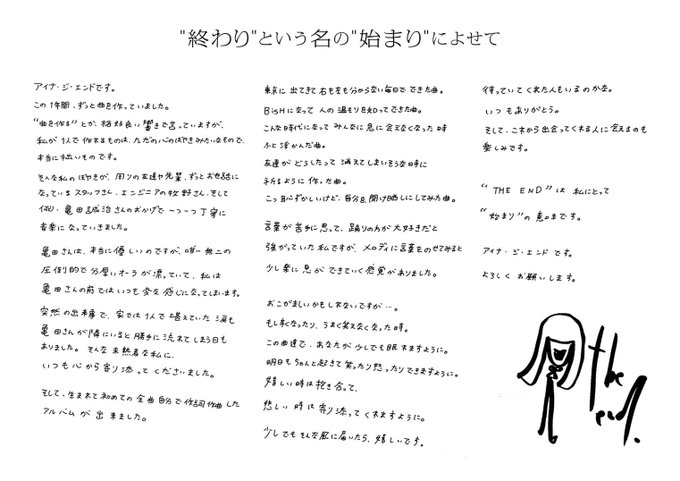 "終わり"という名の"始まり"によせて
アイナ・ジ・エンドです。
この1年間、ずっと曲を作っていました。
"曲を作る"とか、格好良い響きで言っていますが、
私が1人で作れるものは、ただの心のぼやきみたいなもので、
本当に拙いものです。
そんな私のぼやきが、周りの友達や先輩、ずっとお世話に
なっているスタッフさん、エンジニアの牧野さん、そして
亀田誠治さんのおかげで一つ一つ丁寧に
音楽になっていきました。
亀田さんは、本当に優しいのですが、唯一無二の
圧倒的で分厚いオーラが漂っていて、私は
亀田さんの前ではいつも変な感じになってしまいます。
突然の出来事で、家では1人で堪えていた涙も
亀田さんが隣にいると勝手に流れてしまう日も
ありました。そんな未熟者な私に、
いつも心から寄り添ってくださいました。
そして、生まれて初めての全曲自分で作詞作曲した
アルバムが出来ました。
東京に出てきて右も左も分からない毎日でできた曲。
BiSHになって人の温もりを知ってできた曲。
こんな時代になってみんなに急に会えなくなった時
ふと浮かんだ曲。
友達がどうしたって消えてしまいそうな時に
祈るように作った曲。
こっ恥ずかしいけど、自分を開け晒しにしてみた曲。
言葉が苦手に思って、踊りの方が大好きだと
強がっていた私ですが、メロディに言葉をのせてみると
少し楽に息ができていく感覚がありました。
おこがましいかもしれないですが…。
もし辛くなったり、うまく笑えなくなった時。
この曲達で、あなたが少しでも眠れますように。
明日もちゃんと起きて笑ったり怒ったりできますように。
嬉しい時は抱き合って、
悲しい時は寄り添ってくれますように。
少しでもそんな風に届いたら、嬉しいです。
待っていてくれた人もいるのかな。
いつもありがとう。
そして、これから出会ってくれる人に会えるのも
楽しみです。
"THE END"は私にとって
"始まり"の意味です。
アイナ・ジ・エンドです。
よろしくお願いします。
the
end.